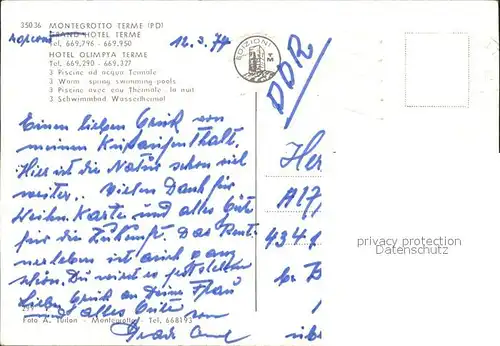 35036 MONTEGROTTO TERME (PD)
GRAND HOTEL TERME
Tel. 669.796 - 669.950
HOTEL OLIMPYA TERME
Tel. 669.290 - 669.327
3 Piscine ad acqua Termale
3 Warm spring swimming-pools
3 Piscine avec eau Thermale - la nuit
3 Schwimmbad Wasserthermal
12.3.74
EDIZIONI
DDR
Einen lieben Gruß von
meinen Kuraufenthalt.
Hier ist die Natur schon viel
weiter.. Vielen Dank für
Weihn. Karte und alles Gute
für die Zukunft. Das Rent-
nerleben ist auch ganz
schön. Du wirst es feststellen
Lieben Gruß an Deine Frau
und alles Gute von
Foto A. Tudan - Montegrotto - Tel. 668193
Her
A17
4341
b. B
privacy protection
Datenschutz